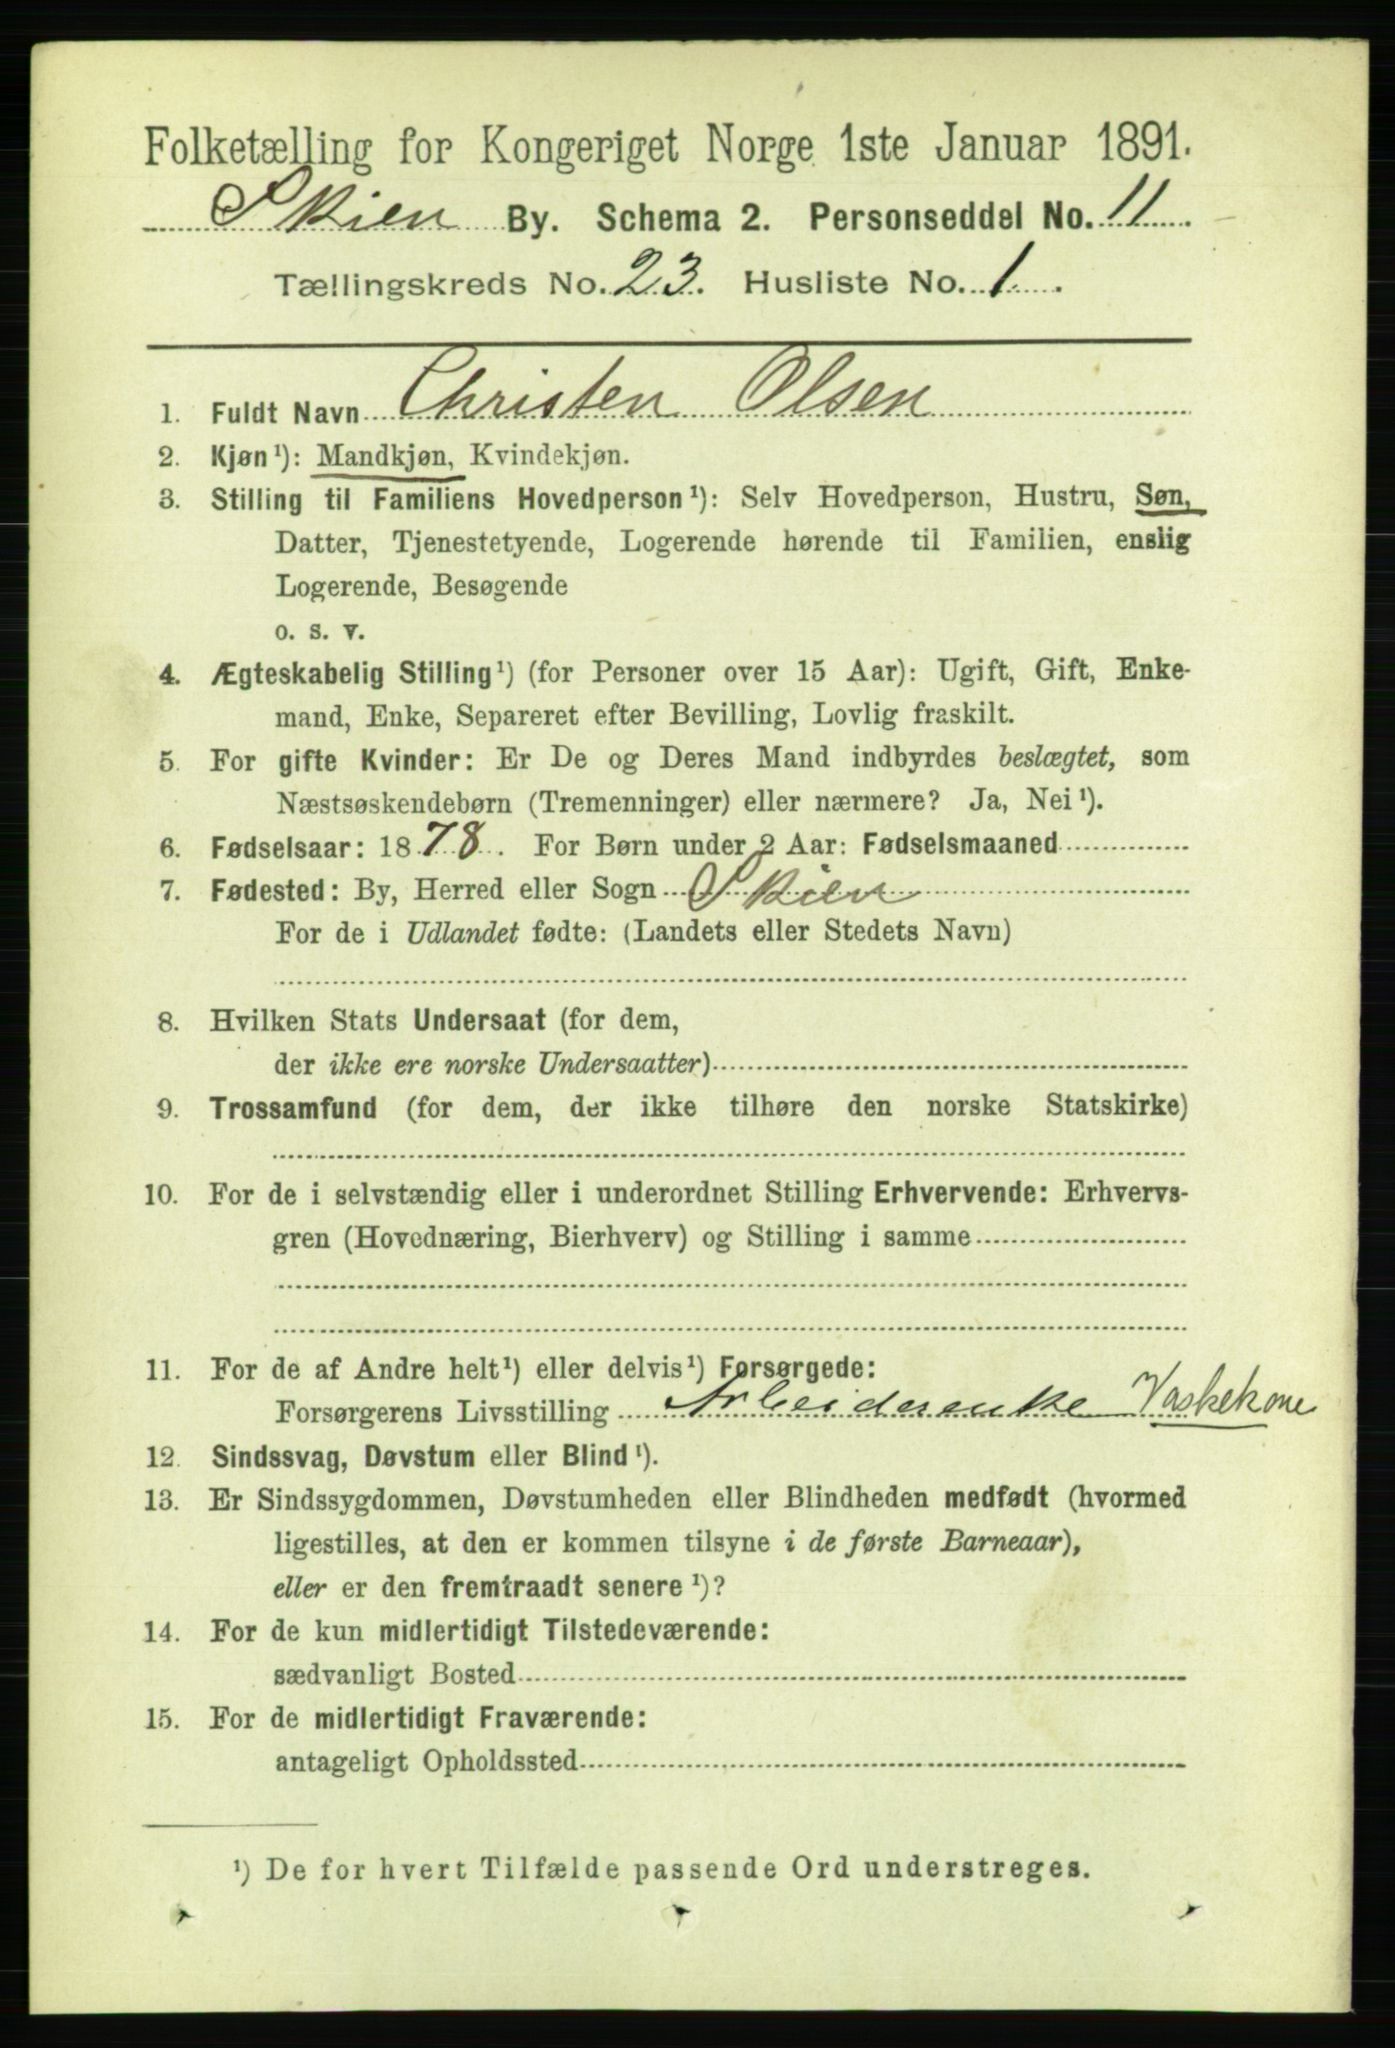 Folketælling for Kongeriget Norge 1ste Januar 1891.
Skien By. Schema 2. Personseddel No. 11
Tællingskreds No. 23. Husliste No. 1.
1. Fuldt Navn Christen Olsen
2. Kjøn¹): Mandkjøn, Kvindekjøn.
3. Stilling til Familiens Hovedperson¹): Selv Hovedperson, Hustru, Søn,
Datter, Tjenestetyende, Logerende hørende til Familien, enslig
Logerende, Besøgende
o. s. v.
4. Ægteskabelig Stilling¹) (for Personer over 15 Aar): Ugift, Gift, Enke-
mand, Enke, Separeret efter Bevilling, Lovlig fraskilt.
5. For gifte Kvinder: Er De og Deres Mand indbyrdes beslægtet, som
Næstsøskendebørn (Tremenninger) eller nærmere? Ja, Nei¹).
6. Fødselsaar: 1878. For Børn under 2 Aar: Fødselsmaaned
7. Fødested: By, Herred eller Sogn Skien
For de i Udlandet fødte: (Landets eller Stedets Navn)
8. Hvilken Stats Undersaat (for dem,
der ikke ere norske Undersaatter)
9. Trossamfund (for dem, der ikke tilhøre den norske Statskirke)
10. For de i selvstændig eller i underordnet Stilling Erhvervende: Erhvervs-
gren (Hovednæring, Bierhverv) og Stilling i samme
11. For de af Andre helt¹) eller delvis¹) Forsørgede:
Forsørgerens Livsstilling Arbeiderenke Vaskekone
12. Sindssvag, Døvstum eller Blind¹).
13. Er Sindssygdommen, Døvstumheden eller Blindheden medfødt (hvormed
ligestilles, at den er kommen tilsyne i de første Barneaar),
eller er den fremtraadt senere¹)?
14. For de kun midlertidigt Tilstedeværende:
sædvanligt Bosted
15. For de midlertidigt Fraværende:
antageligt Opholdssted
¹) De for hvert Tilfælde passende Ord understreges.